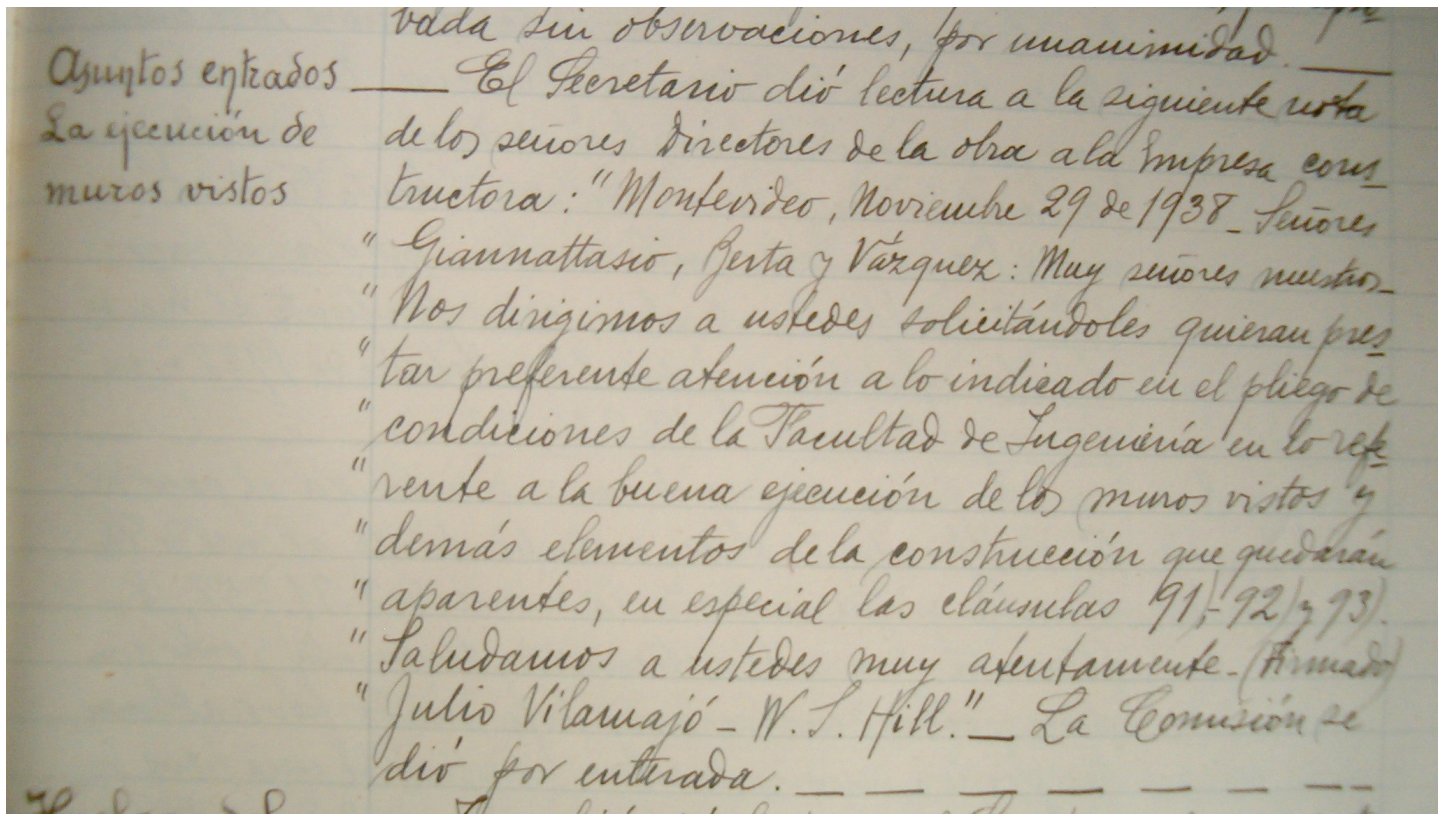 vada sin observaciones, por unanimidad. ___
Asuntos entrados ___ El Secretario dió lectura a la siguiente nota
La ejecución de de los señores Directores de la obra a la Empresa cons_
muros vistos tructora: "Montevideo, Noviembre 29 de 1938_ Señores
" Giannattasio, Berta y Vázquez: Muy señores nuestros_
" Nos dirigimos a ustedes solicitándoles quieran pres_
" tar preferente atención a lo indicado en el pliego de
" condiciones de la Facultad de Ingeniería en lo refe_
" rente a la buena ejecución de los muros vistos y
" demás elementos de la construcción que quedarán
" aparentes, en especial las cláusulas 91)-92) y 93).
" Saludamos a ustedes muy atentamente_ (Firmado)
" Julio Vilamajó - W. S. Hill."_ La Comisión se
dió por enterada. _ _ _ _ _ _ _ _